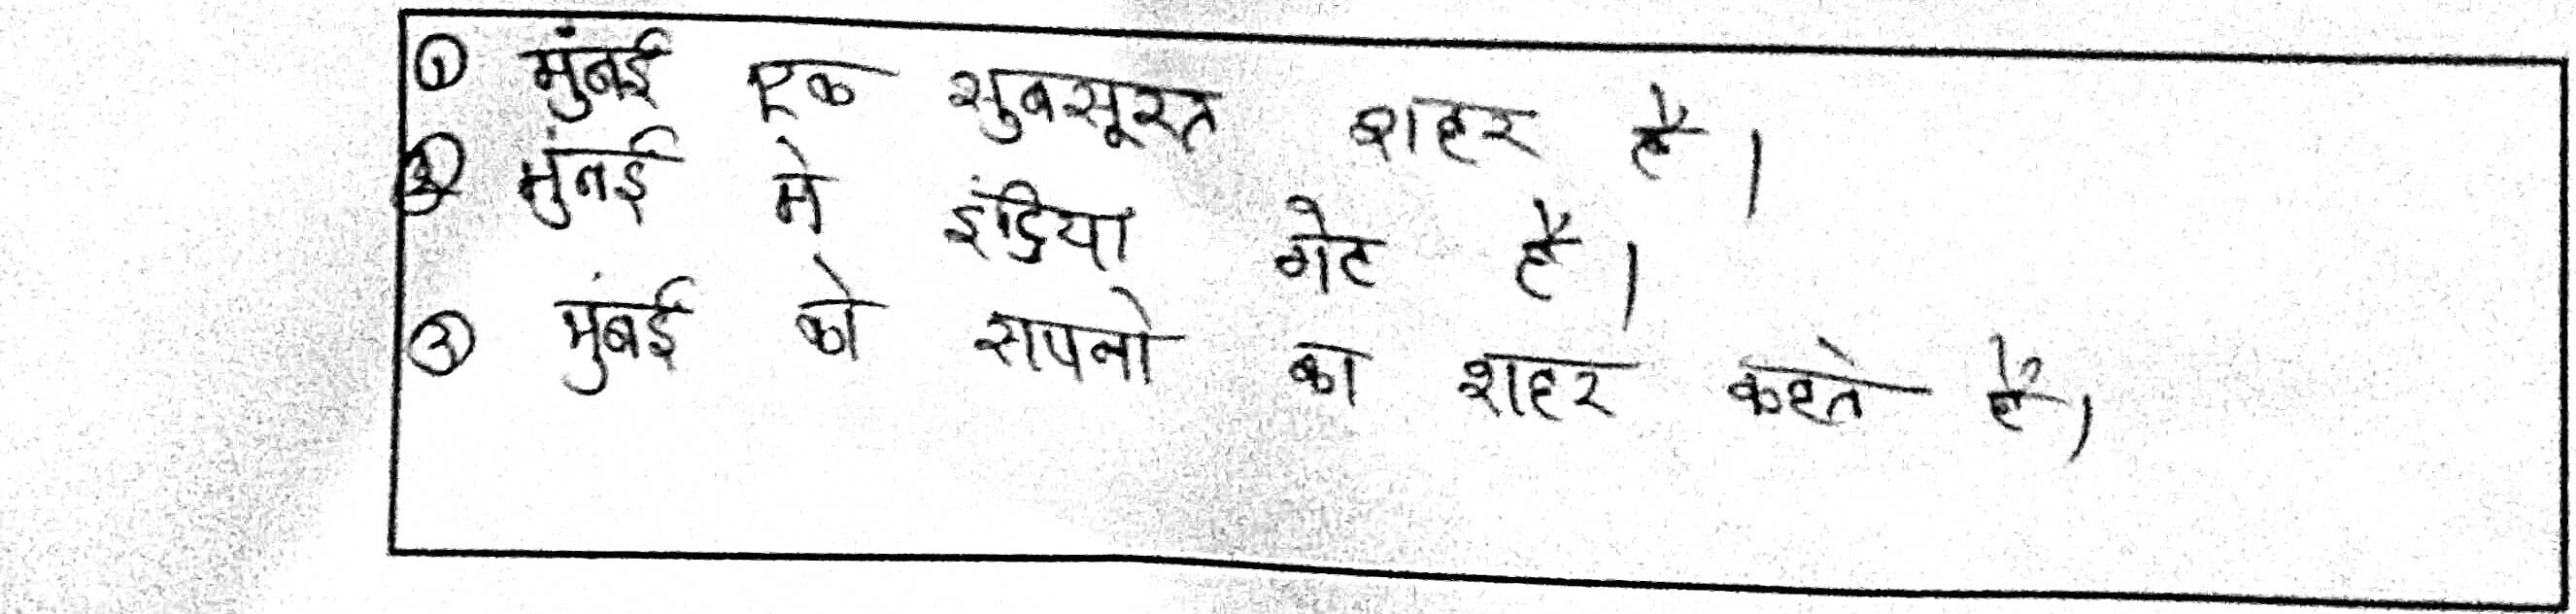 ① मुंबई एक सुबसूरत शहर है।
② मुंबई मे इंडिया गेट है।
③ मुंबई को सपनो का शहर कहते है।